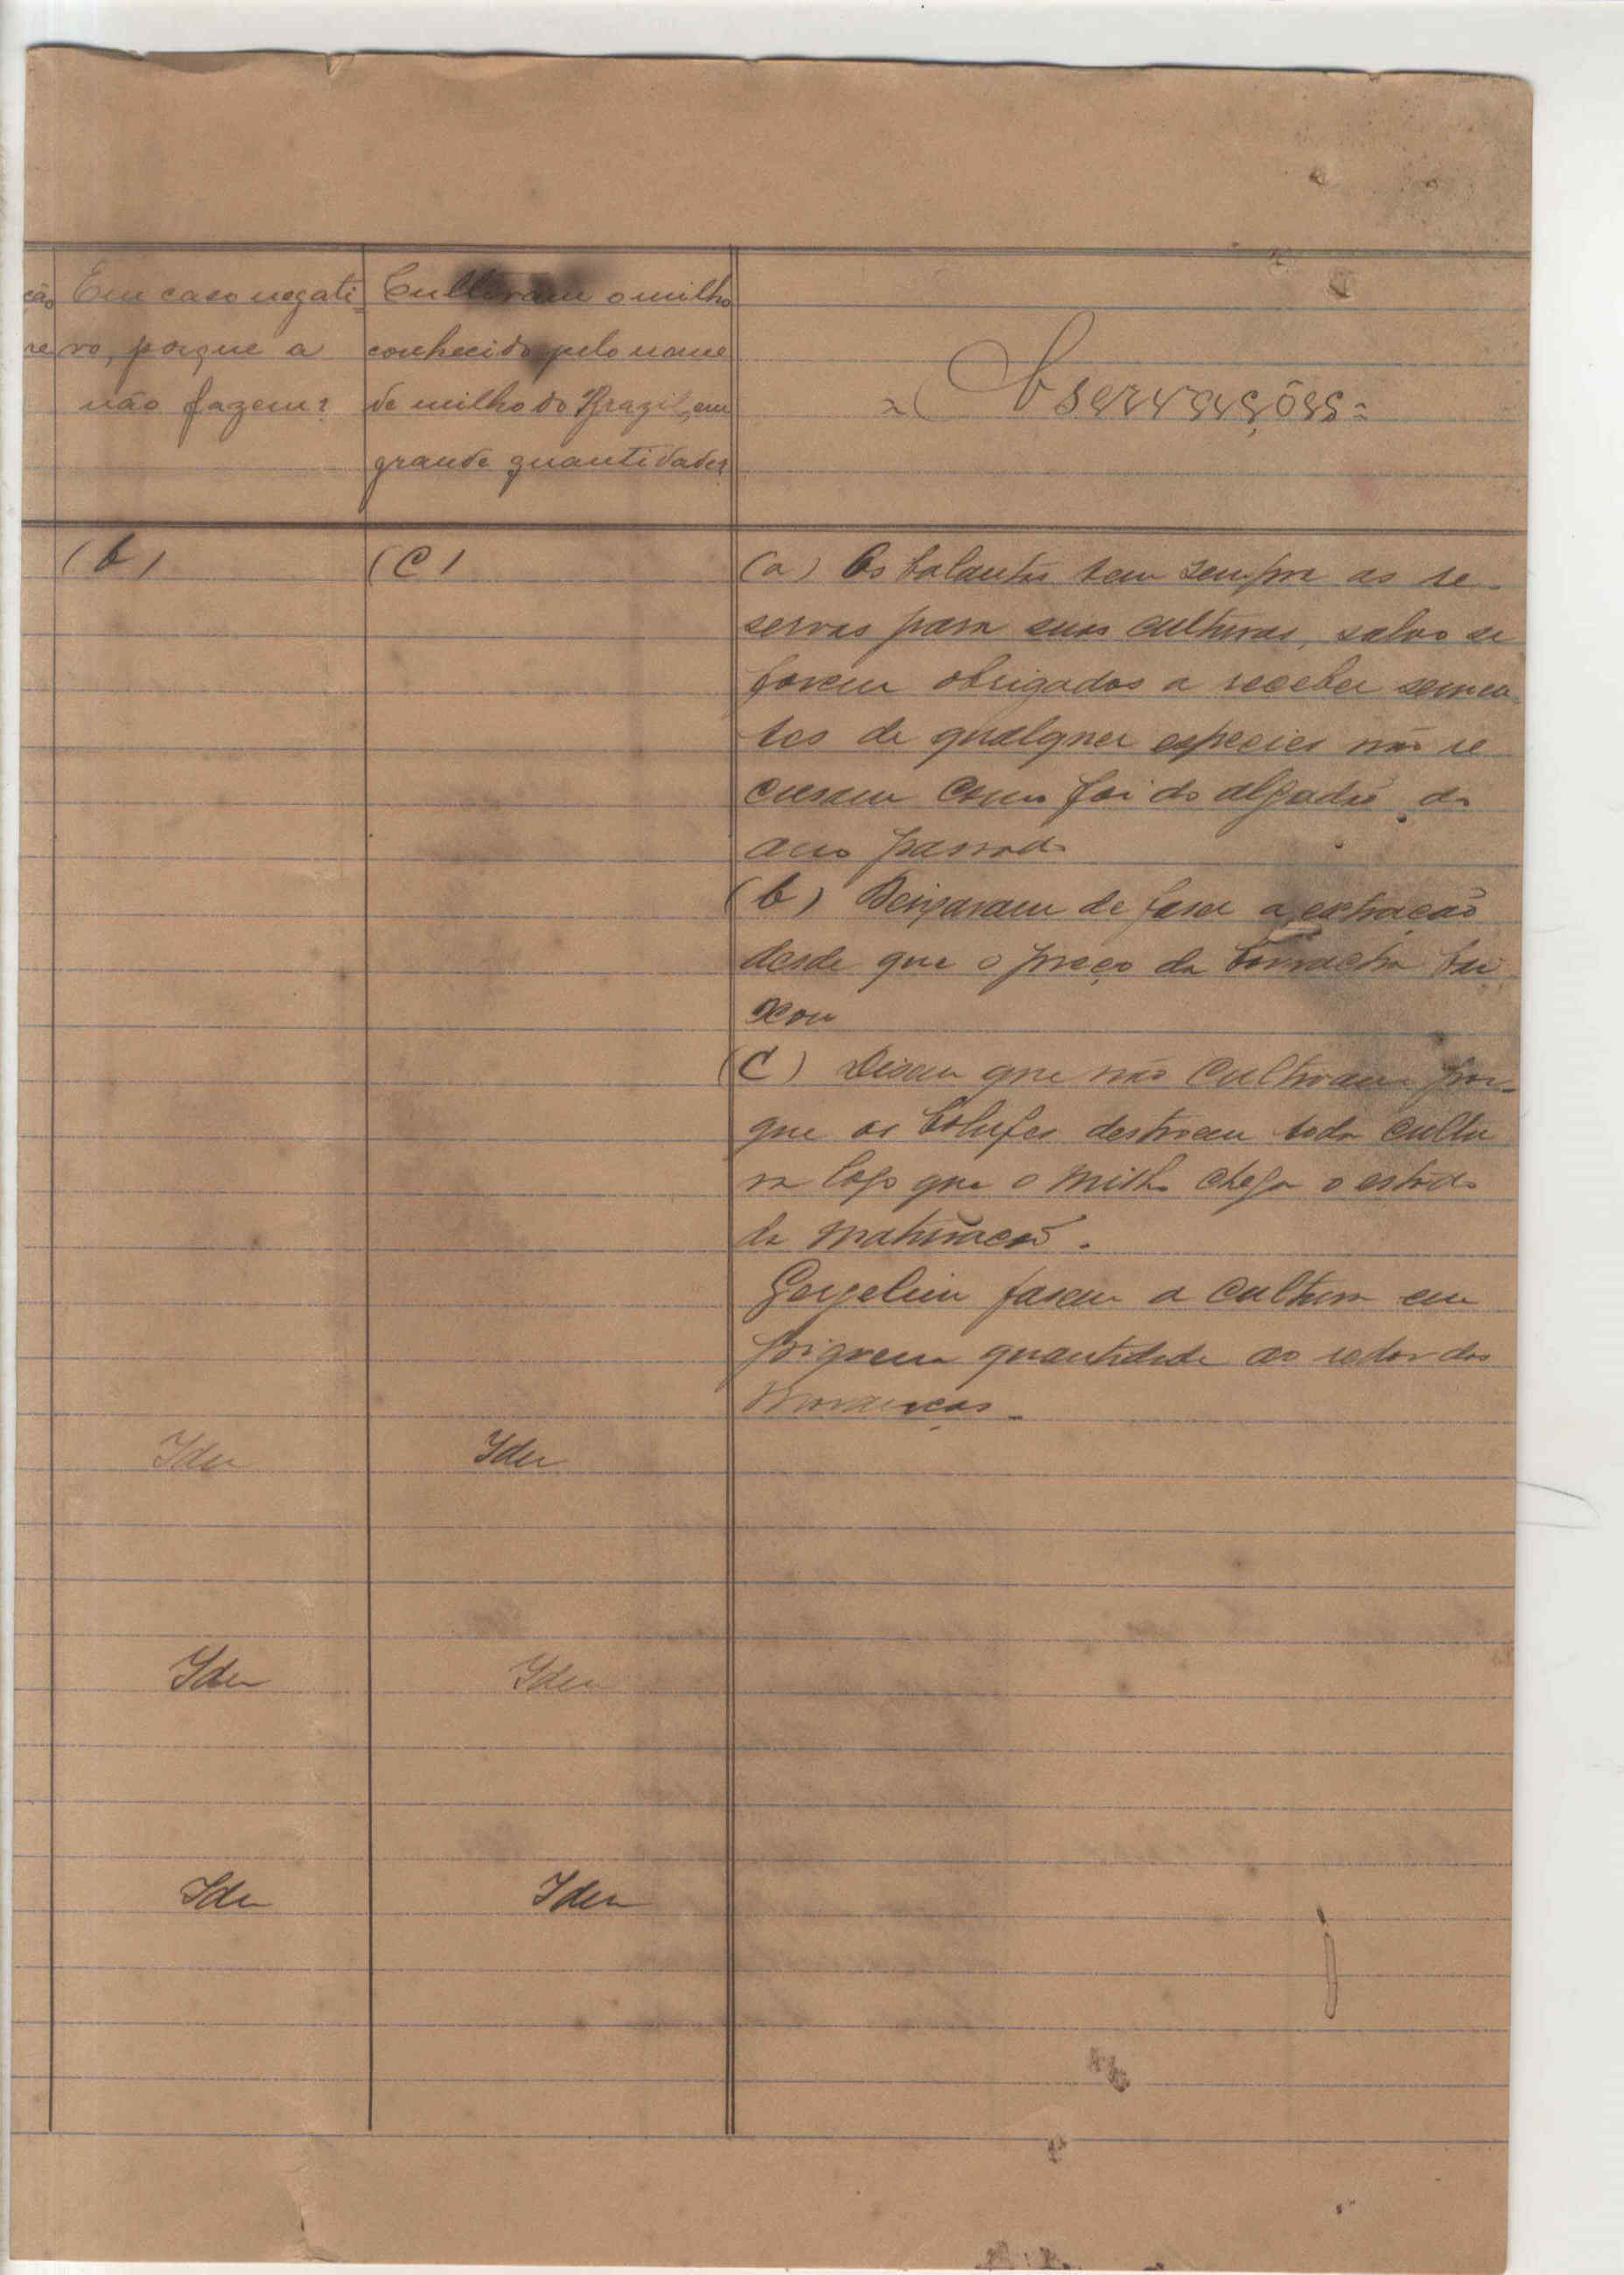 ção
re
Em caso negati=
vo, porque a
não fazem?
Cultivam o milho
conhecido pelo nome
de milho do Brazil, em
grande quantidade?
= Observações =
(b)
(C)
(a) Os balantas tem sempre as re-
servas para suas culturas, salvo se
forem obrigados a receber semen
tes de qualquer especies não re
cusam como foi do algodão do
ano passado
(b) Deixaram de faser a extração
desde que o preço da borracha bai
xou
(C) Disem que não cultivam por-
que os destroem toda cultu
ra logo que o milho chega o estado
da maturação.
Gergelim fasem a cultura em
piquena quantidade ao redor das
moranças.
Idem
Idem
Idem
Idem
Idem
Idem